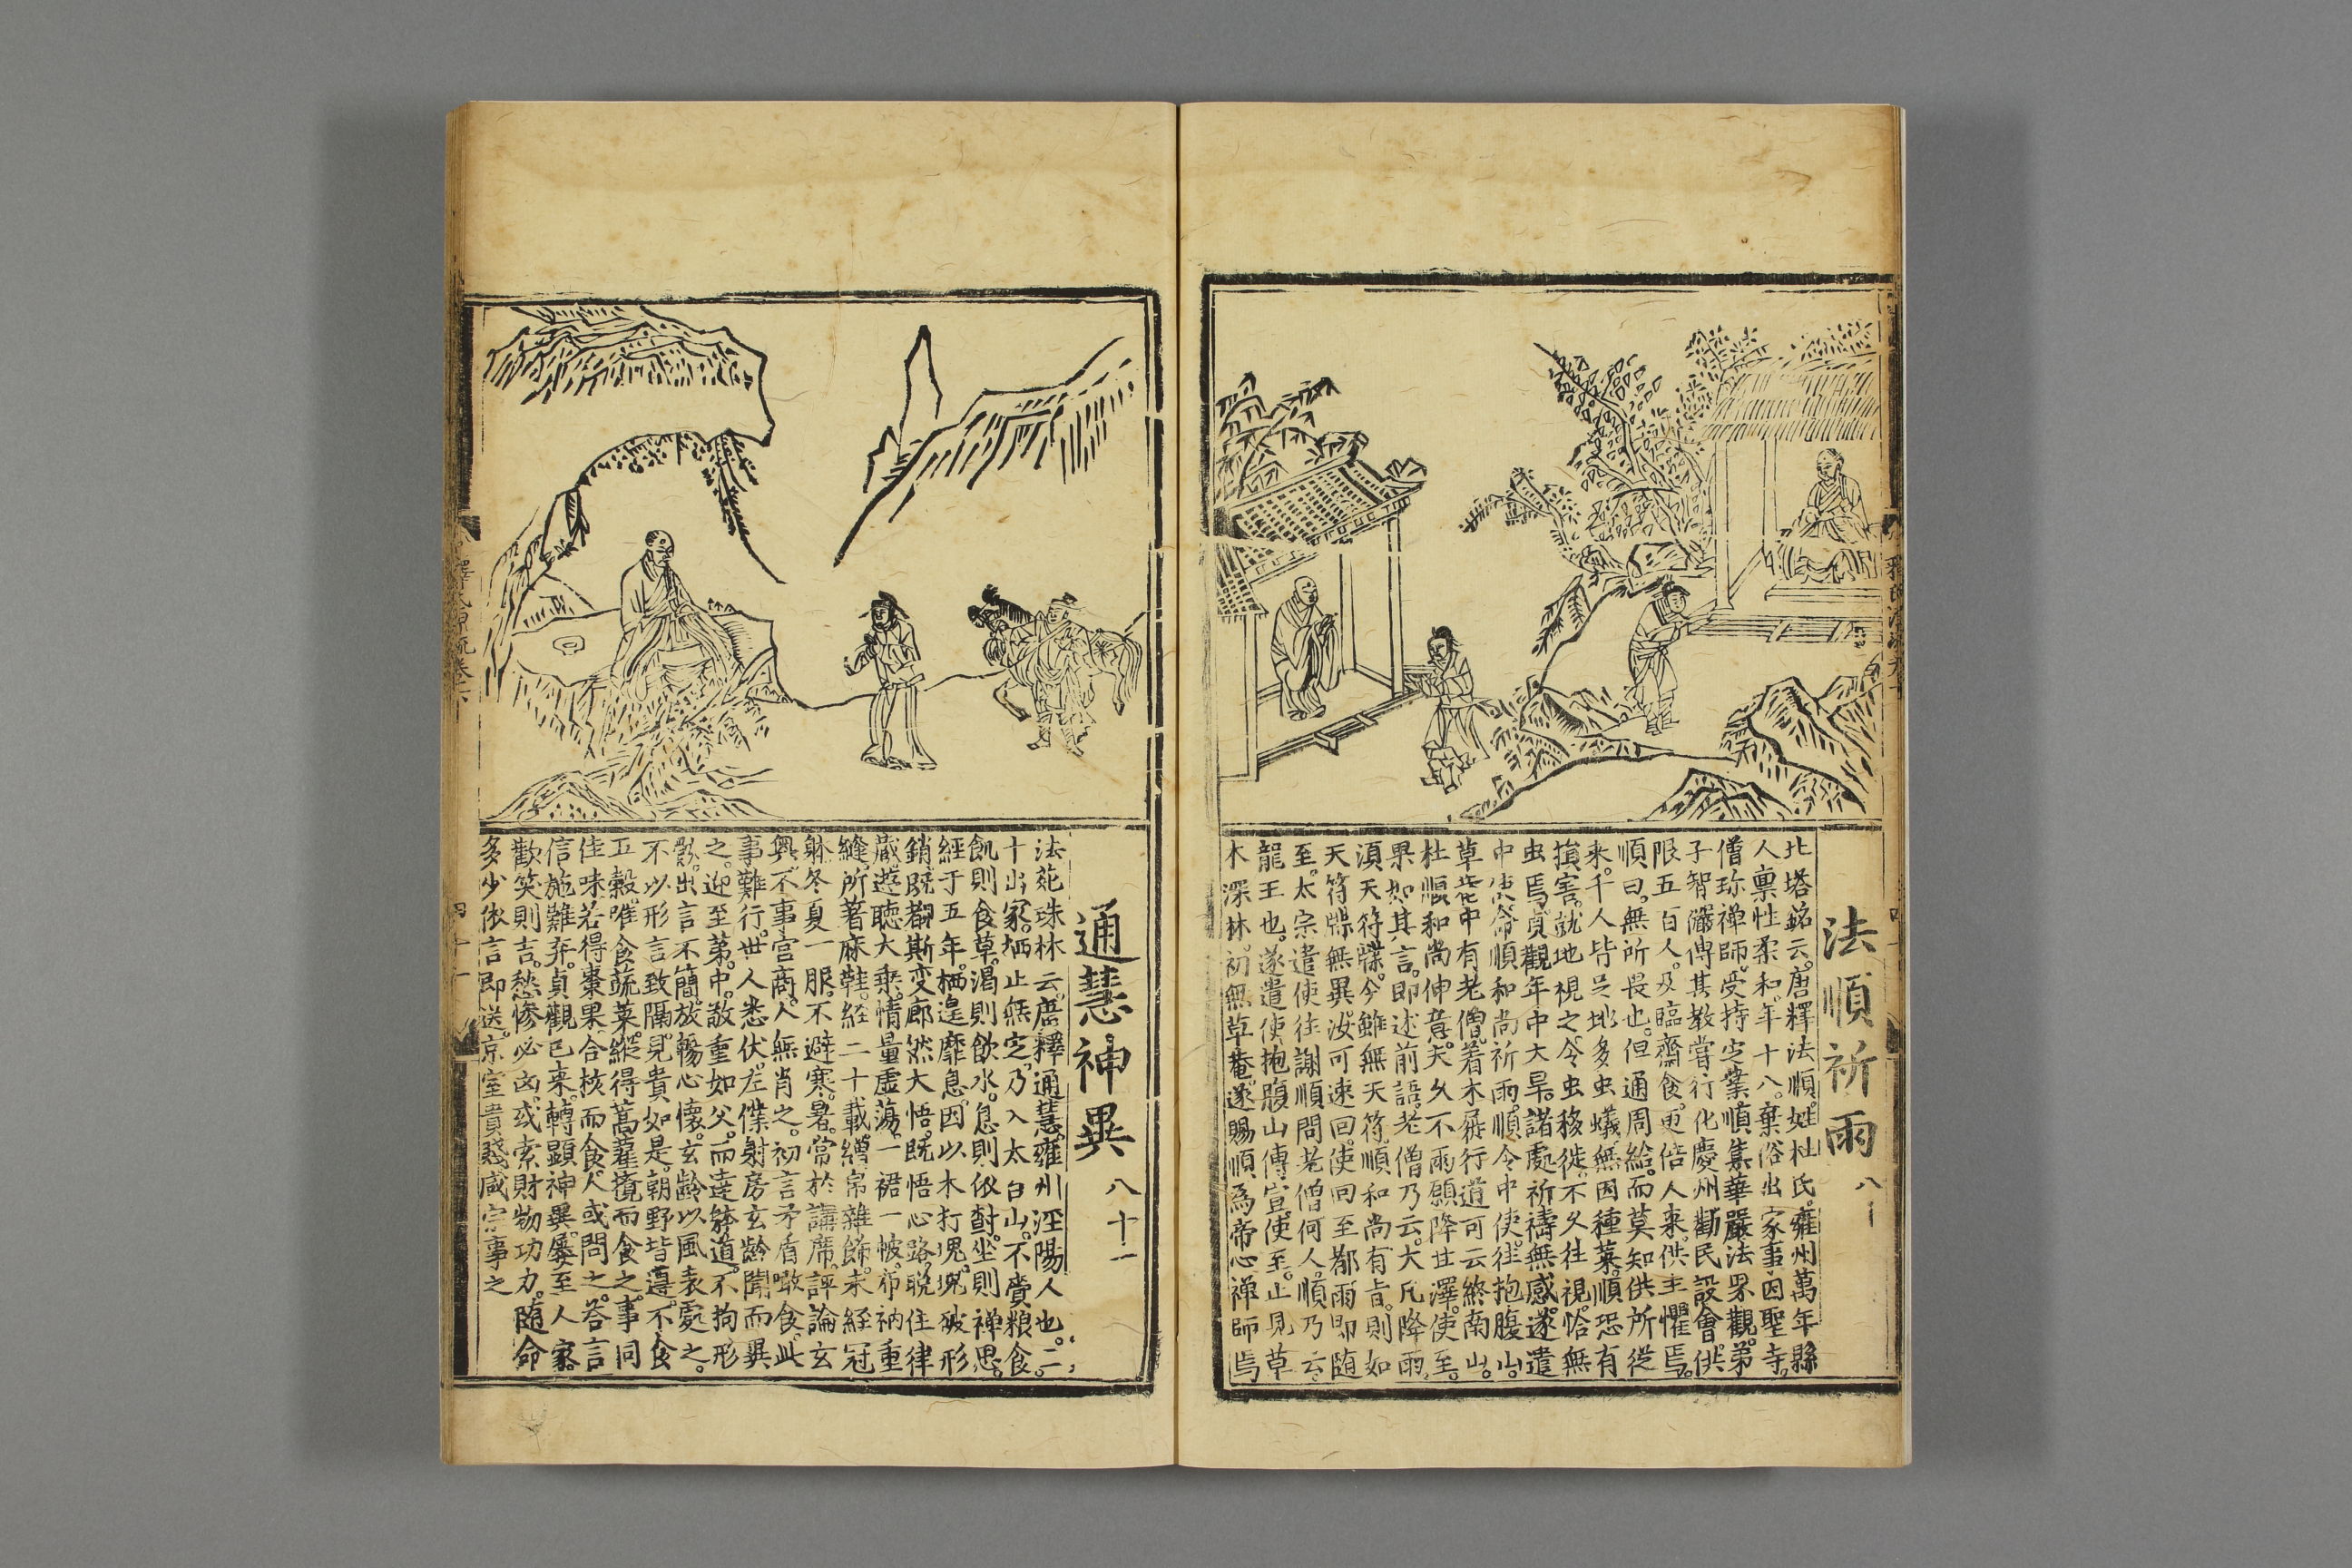 法順祈雨 八十
北塔銘云。唐釋法順。姓杜氏。雍州萬年縣
人。禀性柔和。年十八。棄俗出家。事因聖寺。
僧珍禅師。受持定業。順集華嚴法界觀。弟
子智儼傳其教。嘗行化慶州。勸民設會。供
限五百人。及臨齋食。更倍人来。供主懼焉。
順曰。無所畏也。但通周給。而莫知供所從
来。千人皆足。地多虫蟻。無因種菜。順恐有
損害。就地視之。令虫移徙。不久往視。恰無
虫焉。貞觀年中大旱。諸處祈禱無感。遂遣
中使命順和尚祈雨。順令中使。往抱腹山。
草菴中有老僧。着木屐行道。可云終南山。
杜順和尚伸意。天久不雨。願降甘澤。使至。
果如其言。即述前語。老僧乃云。大凡降雨。
須天符牒。今雖無天符。順和尚有旨。則如
天符牒無異。汝可速回。使回至都。雨即随
至。太宗遣使往謝順。問老僧何人。順乃云。
龍王也。遂遣使抱腹山傳宣。使至。止見草
木深林。初無草菴。遂賜順為帝心禅師焉
通慧神異 八十一
法苑珠林云。唐釋通慧。雍州涇陽人也。三
十出家。栖止無定。乃入太白山。不賫粮食。
飢則食草。渴則飲水。息則依樹。坐則禅思。
經于五年。栖遑靡息。因以木打塊。塊破形
銷。既覩斯变。廓然大悟。既悟心路。晚住律
藏。遊聴大乘。情量虚蕩。一裙一帔。布衲重
縫。所著麻鞋。経二十載。繒帛雜飾。未経冠
躰。冬夏一服。不避寒暑。常於講席。評論玄
奥。不事宫商。人無肖之。初言矛盾。噉食此
事難行。世人悉伏。左僕射房玄齡聞而異
之。迎至第中。敬重如父。而達躰道。不拘形
骸。出言不簡。放暢心懷。玄齡以風表處之。
不以形言致隔。見貴如是。朝野皆遵。不食
五穀。唯食蔬菜。縱得蒿藿。攬而食之。事同
佳味。若得棗果。合核而食。人或問之。答言
信施難弃。貞觀已来。轉顯神異。屡至人家。
歡笑則吉。愁慘必凶。或索財物功力。随命
多少。依言即送。京室貴賤。咸宗事之